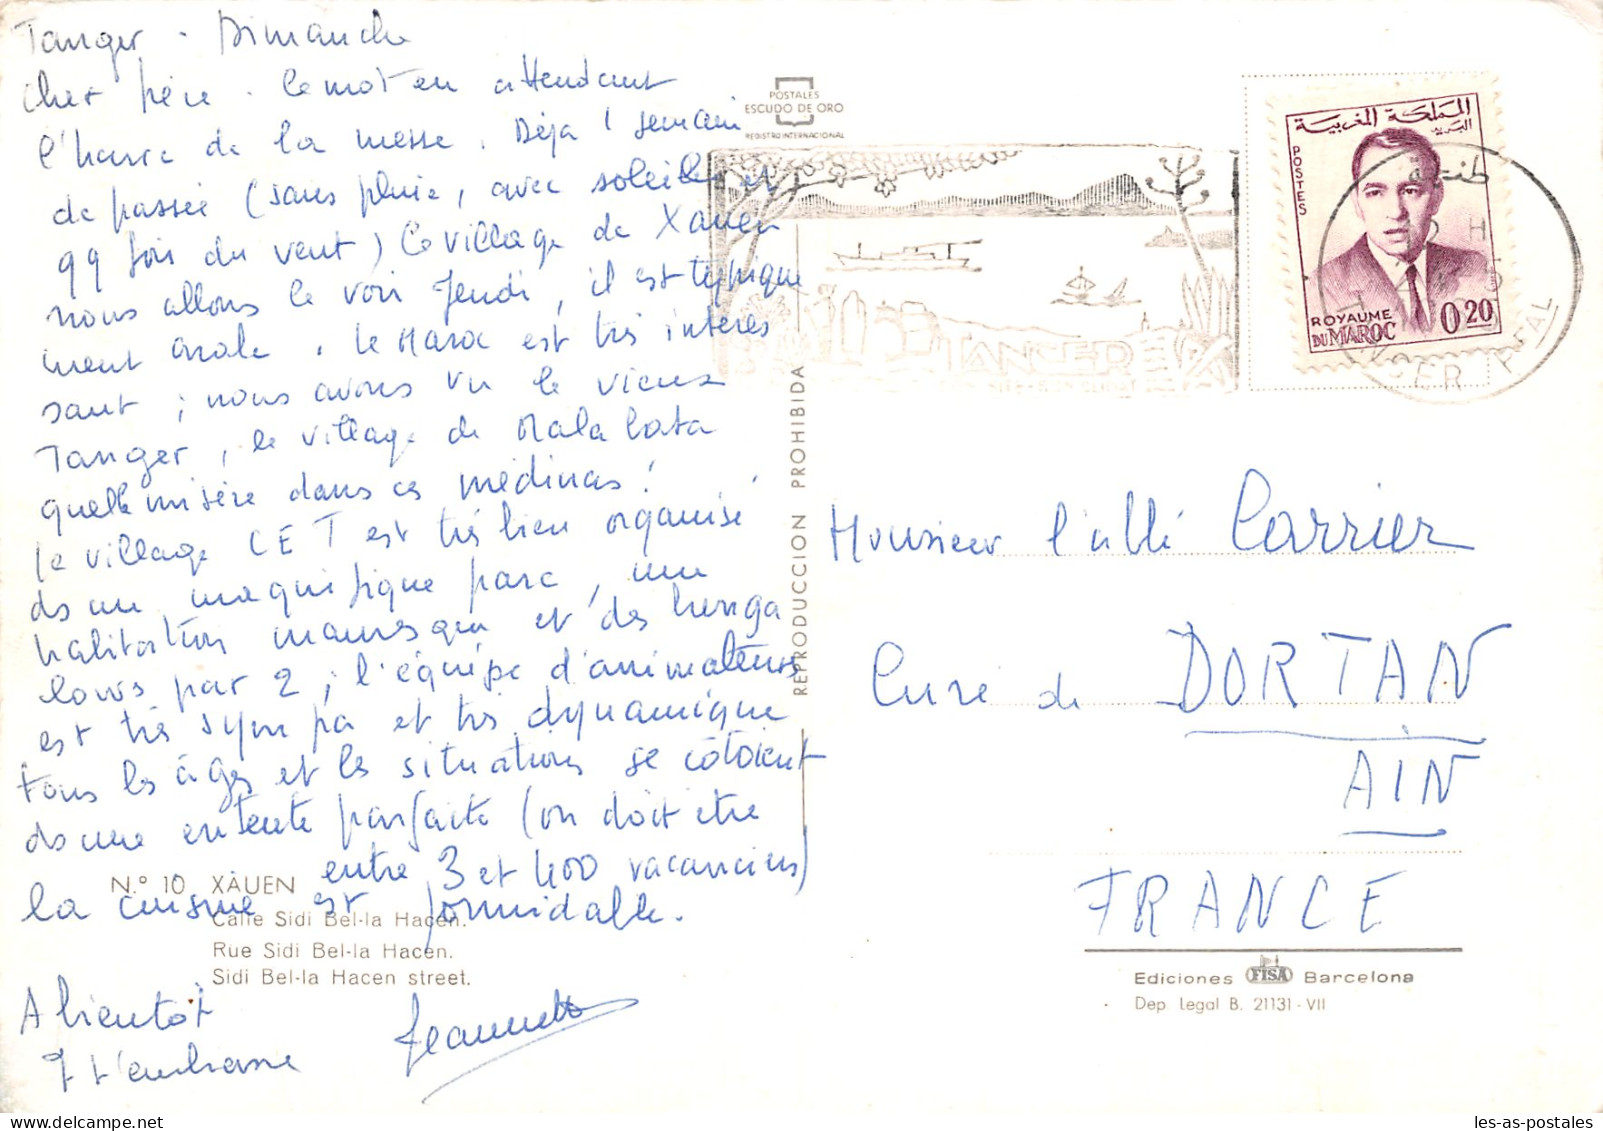 Tanger - Dimanche
Cher père. Ce mot en attendant
l'heure de la messe. Déjà 1 semain
de passée (sans pluie, avec soleil et
99 fois du vent) Ce village de Xauen
nous allons le voir Jeudi, il est typique
ment arabe. Le Maroc est très intéres
sant ; nous avons vu le vieux
Tanger, le village de Malabata
quelle misère dans ces médinas !
le village CET est très bien organisé
ds un magnifique parc, une
habitation mauresque et des bunga
lows par 2 ; l'équipe d'animateurs
est très sympa et très dynamique
tous les âges et les situations se côtoient
ds une entente parfaite (on doit être
entre 3 et 400 vacanciers)
la cuisine est formidable.
A bientôt
J t'embrasse
Jeannette
N.º 10 XAUEN
Calle Sidi Bel-la Hacen.
Rue Sidi Bel-la Hacen.
Sidi Bel-la Hacen street.
POSTALES
ESCUDO DE ORO
REGISTRO INTERNACIONAL
REPRODUCCION PROHIBIDA
TANGER
المملكة المغربية
البريد
POSTES
ROYAUME
DU MAROC
0.20
طنجة
12 H
TANGER PPAL
Monsieur l'abbé Carrier
Curé de DORTAN
AIN
FRANCE
Ediciones FISA Barcelona
Dep. Legal B. 21131 - VII
les-as-postales